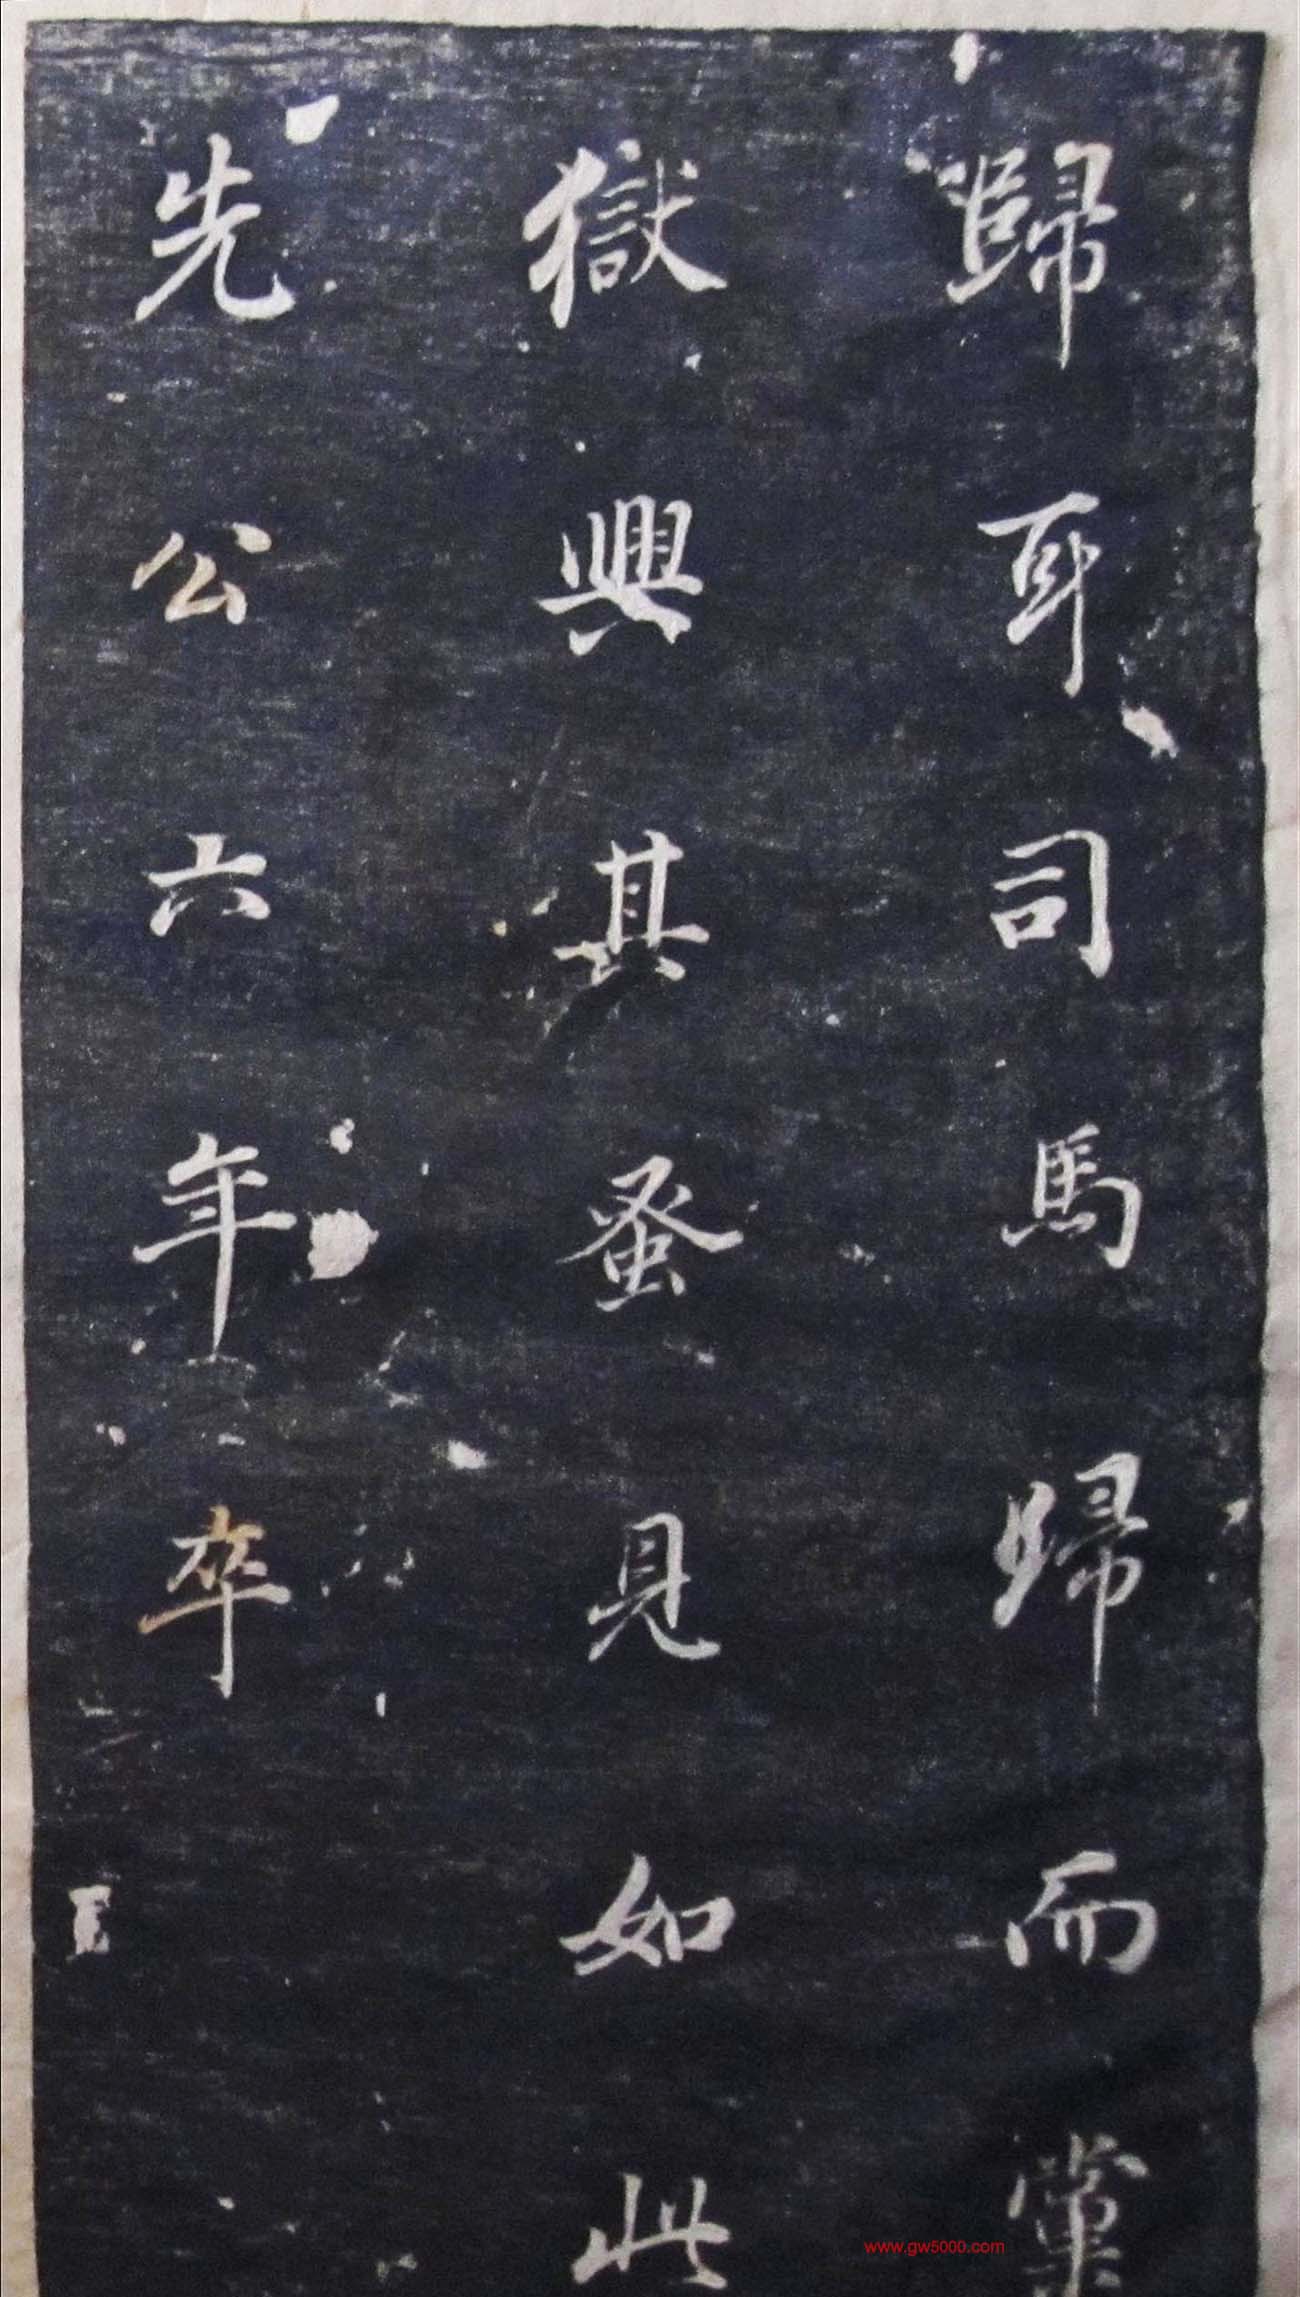 歸耳司馬歸而黨
獄興其蚤見如此
先公六年卒
www.gw5000.com